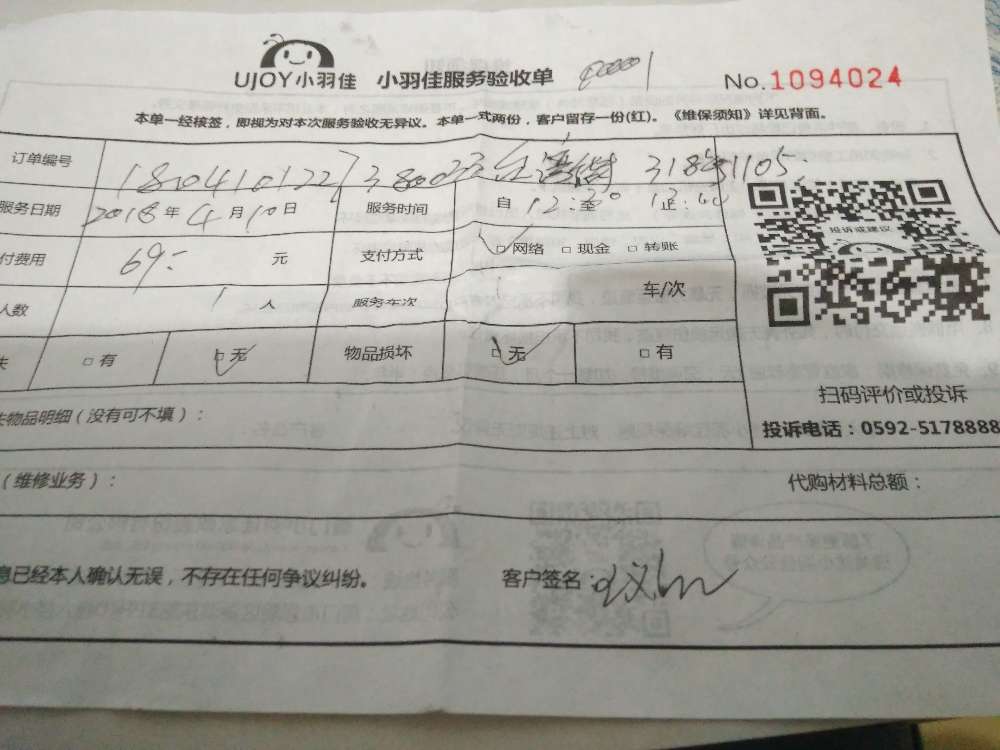 UJOY小羽佳 小羽佳服务验收单 No.1094024
本单一经核签，即视为对本次服务验收无异议。本单一式两份，客户留存一份(红)。《维保须知》详见背面。
订单编号
服务日期 2018年4月10日 服务时间 自12:00至
付费用 69 元 支付方式 □网络 □现金 □转账
投诉或建议
人数 1人 服务车次 车/次
失 □有 □无 物品损坏 □无 □有
扫码评价或投诉
失物品明细(没有可不填)：
投诉电话：0592-5178888
(维修业务)： 代购材料总额：
息已经本人确认无误，不存在任何争议纠纷。 客户签名：